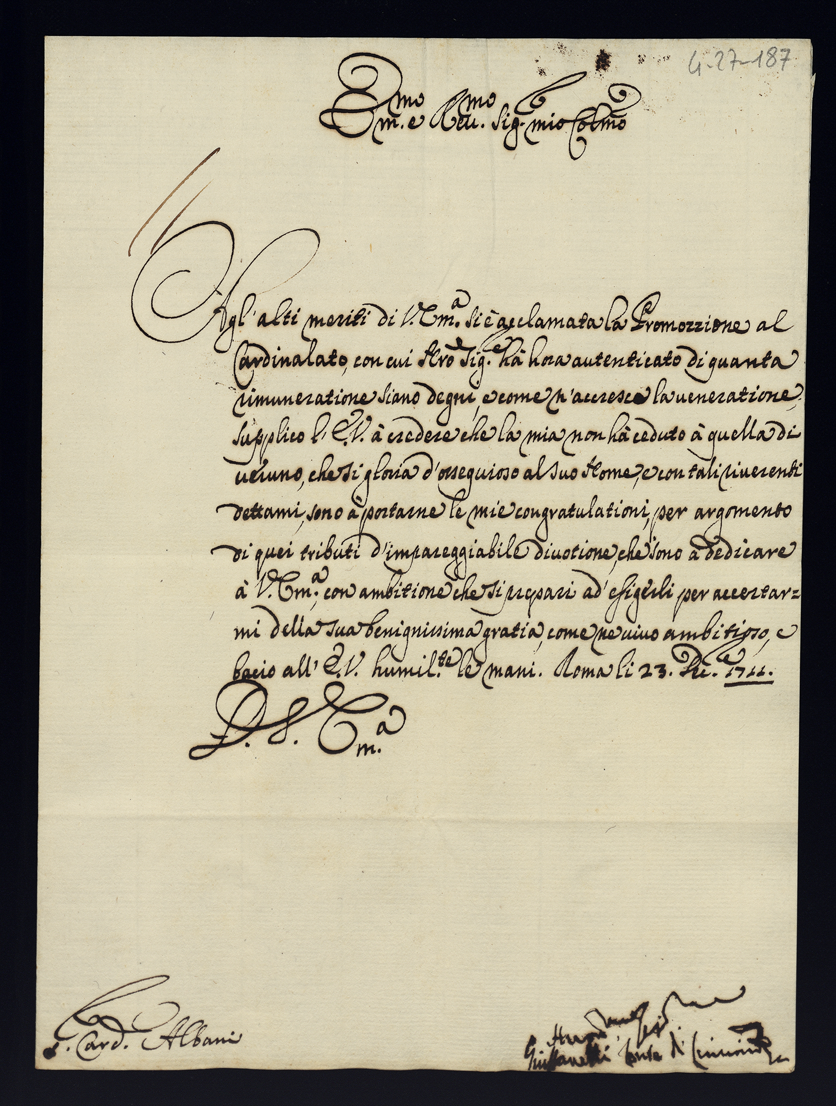 4-27-187
Em.mo e Reu.mo Sig.r mio Col.mo
Agl'alti meriti di V. Em.a si è acclamata la Promozzione al
Cardinalato, con cui Nro Sig.re hà hora autenticato di quanta
rimuneratione siano degni, e come n'accresce la ueneratione,
supplico l'E.V. à credere che la mia non hà ceduto à quella di
ueruno, che si gloria d'ossequioso al suo Nome, e con tali riuerenti
dettami, sono à portarne le mie congratulationi, per argomento
di quei tributi d'impareggiabile diuotione, che sono à dedicare
à V. Em.a, con ambitione che si prepari ad' esigerli, per accertar=
mi della sua benignissima gratia, come ne uiuo ambitioso, e
bacio all' E.V. humil.te le mani. Roma li 23. Dic.e 1711.
D. V. Em.a
S. Card. Albani